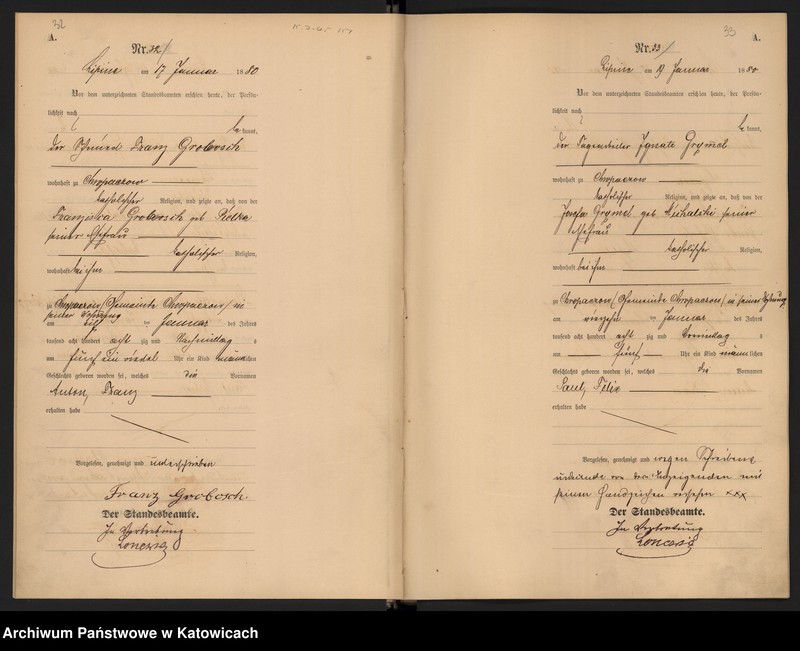 32
A.
Nr. 32/
Lipine am 17 Januar 1880
Vor dem unterzeichneten Standesbeamten erschien heute, der Persön-
lichkeit nach
kannt,
der Franz Grobosch
wohnhaft zu Chropaczow
katholischer Religion, und zeigte an, daß von der
Franziska Grobosch geb
seiner Ehefrau
katholischer Religion,
wohnhaft bei ihm
zu Chropaczow (Gemeinde Chropaczow) in
seiner Wohnung
am elf ten Januar des Jahres
tausend acht hundert acht zig und Nachmittag s
um fünf ein viertel Uhr ein Kind männlichen
Geschlechts geboren worden sei, welches die Vornamen
Anton, Franz
erhalten habe
Vorgelesen, genehmigt und unterschrieben
Franz Grobosch.
Der Standesbeamte.
In Vertretung
33
A.
Nr. 33/
Lipine am 19 Januar 1880
Vor dem unterzeichneten Standesbeamten erschien heute, der Persön-
lichkeit nach
kannt,
der Ignatz
wohnhaft zu Chropaczow
katholischer Religion, und zeigte an, daß von der
Josefa geb Michalski seiner
Ehefrau
katholischer Religion,
wohnhaft bei ihm
zu Chropaczow (Gemeinde Chropaczow) in seiner Wohnung
am ten Januar des Jahres
tausend acht hundert acht zig und Vormittag s
um fünf Uhr ein Kind männlichen
Geschlechts geboren worden sei, welches die Vornamen
Paul, Felix
erhalten habe
Vorgelesen, genehmigt und wegen Schreibens
unkunde von dem Anzeigenden mit
seinem Handzeichen versehen xxx
Der Standesbeamte.
In Vertretung
Archiwum Państwowe w Katowicach